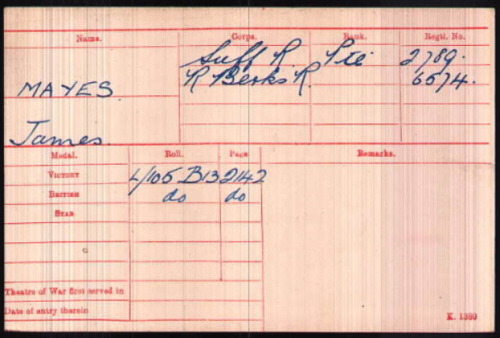 Name. Corps. Rank. Regtl. No.
Suff R. Pte 2789.
R Berks R. 6574.
MAYES
James.
Medal. Roll. Page Remarks.
VICTORY L/105 B13 2142
BRITISH do do
STAR
Theatre of War first served in
Date of entry therein
K. 1380